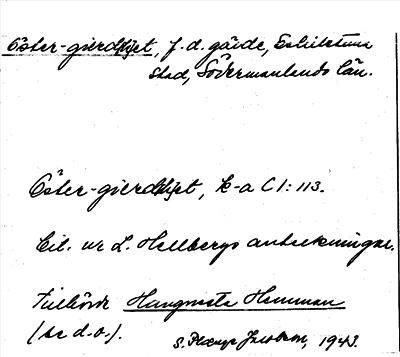 Öster-gierdhet, f. d. gärde, Eskilstuna
stad, Södermanlands län.
Öster-gierdhet, k-a C I: 113.
Cit. ur L. Hellbergs anteckningar.
Tillhörde Hungwasta Hemman
(se d. o.).
S. 1943.